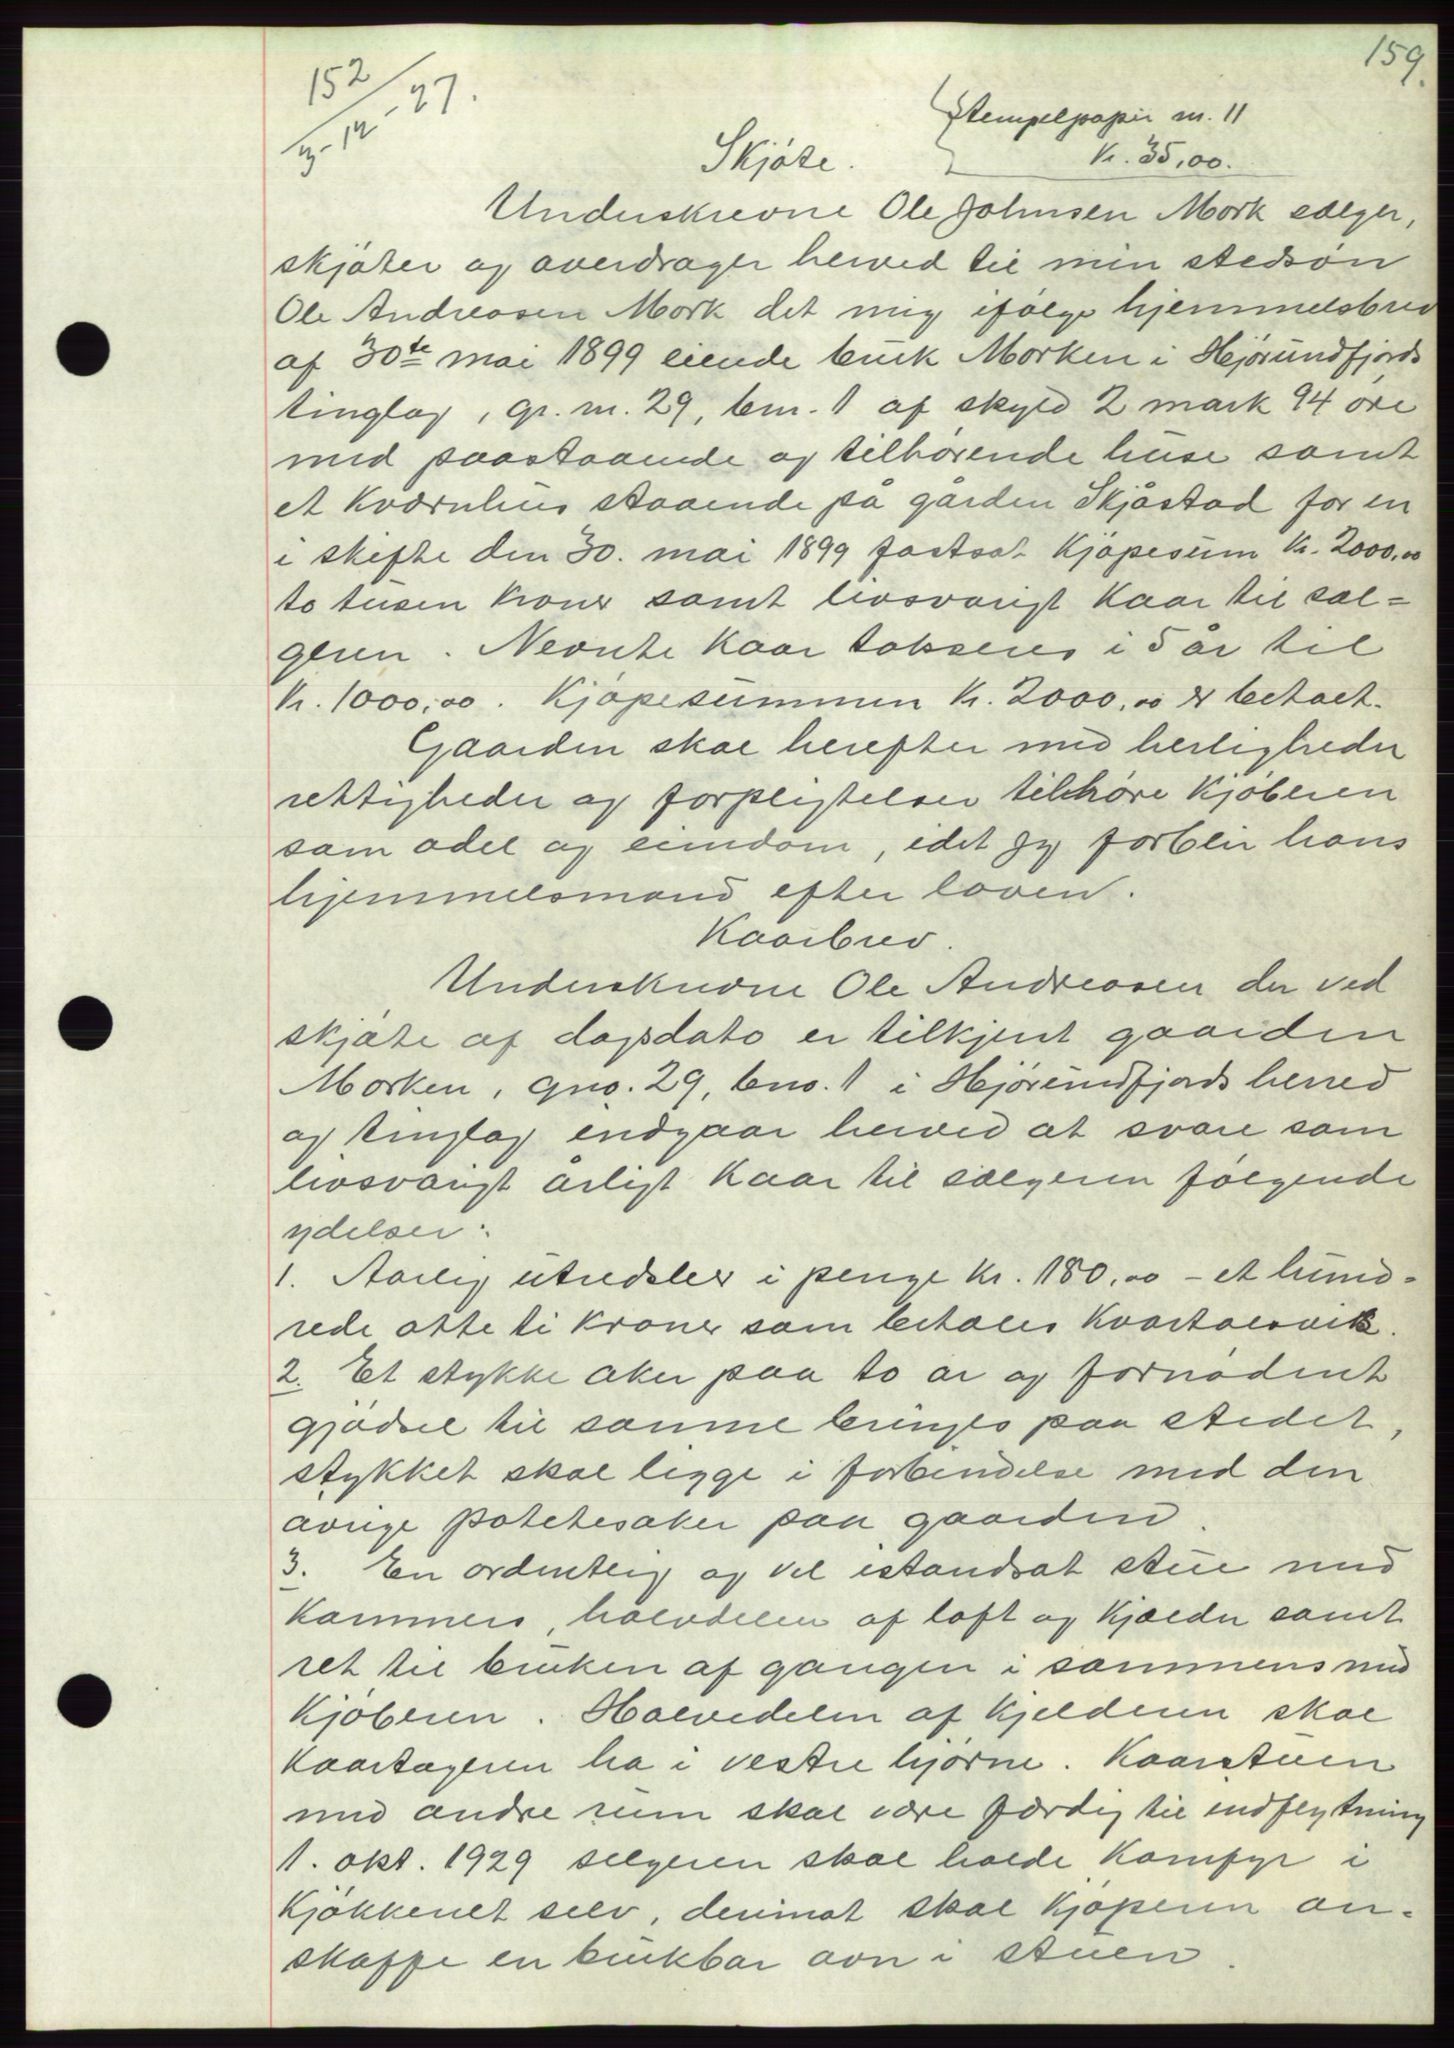 159.
152
3-12-27.
Stempelpapir nr. 11
Kr. 35,00.
Skjøte.
Underskrevne Ole Johnsen Mork sælger,
skjøter og overdrager herved til min stedsøn
Ole Andreasen Mork det mig ifølge hjemmelsbrev
af 30te mai 1899 eiende bruk Morken i Hjørundfjords
tinglag, gr. nr. 29, brn. 1 af skyld 2 mark 94 øre
med paastaaende og tilhørende huse samt
et kværnhus staaende på gården Skjåstad for en
i skifte den 30. mai 1899 fastsat kjøpesum kr. 2000,00
to tusen kroner samt livsvarigt kaar til sæl=
geren. Nevnte kaar takseres i 5 år til
kr. 1000,00. Kjøpesummen kr. 2000,00 er betalt.
Gaarden skal herefter med herligheder
rettigheder og forpligtelser tilhøre kjøberen
som odel og eiendom, idet jeg forblir hans
hjemmelsmand efter loven.
Kaarbrev.
Underskrevne Ole Andreasen der ved
skjøte af dagsdato er tilkjent gaarden
Morken, gno. 29, bno. 1 i Hjørundfjords herred
og tinglag indgaar herved at svare som
livsvarigt årligt kaar til sælgeren følgende
ydelser:
1. Aarlig utredsler i penge kr. 180,00 - et hund=
rede otte ti kroner som betales kvartalsvis.
2. Et stykke aker paa to ar og fornødent
gjødsel til samme bringes paa stedet,
stykket skal ligge i forbindelse med den
øvrige potetesaker paa gaarden.
3. En ordentlig og vel istandsat stue med
kammers, halvdelen af loft og kjælder samt
ret til bruken af gangen i sammens med
kjøberen. Halvedelen af kjelderen skal
kaartageren ha i vestre hjørne. Kaarstuen
med andre rum skal være færdig til indflytning
1. okt. 1929 selgeren skal holde komfyr i
kjøkkenet selv, derimot skal kjøperen an=
skaffe en brukbar ovn i stuen.